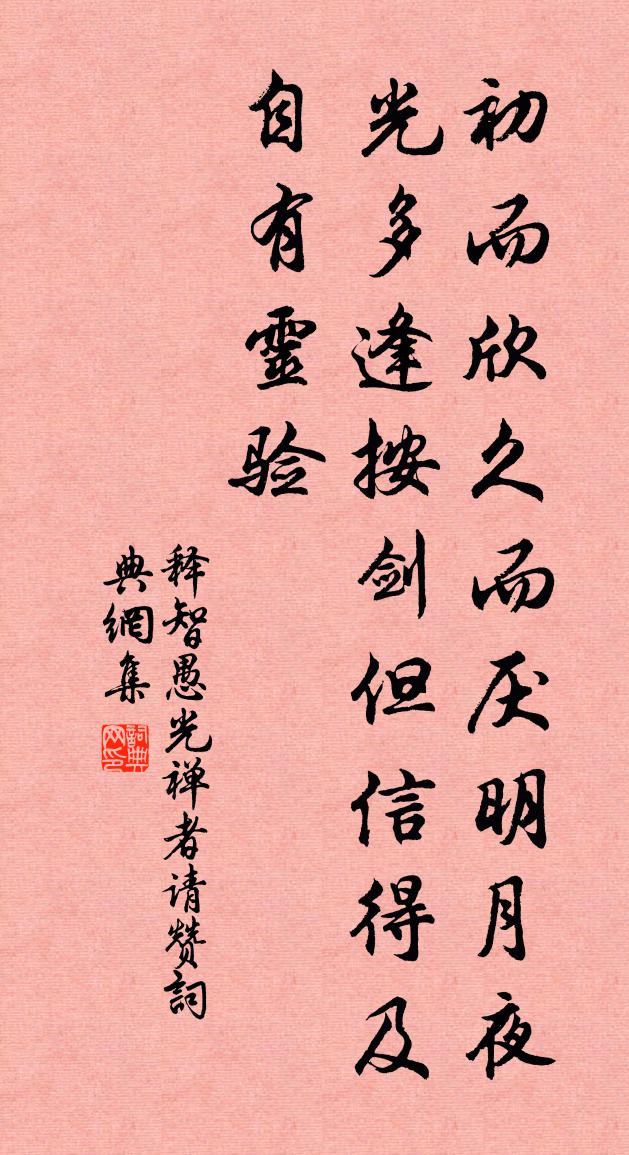 初而欣久而厌明月夜
光多逢按剑但信得及
自有靈验
释智愚光禅者请赞詞
典網集
詞典网印